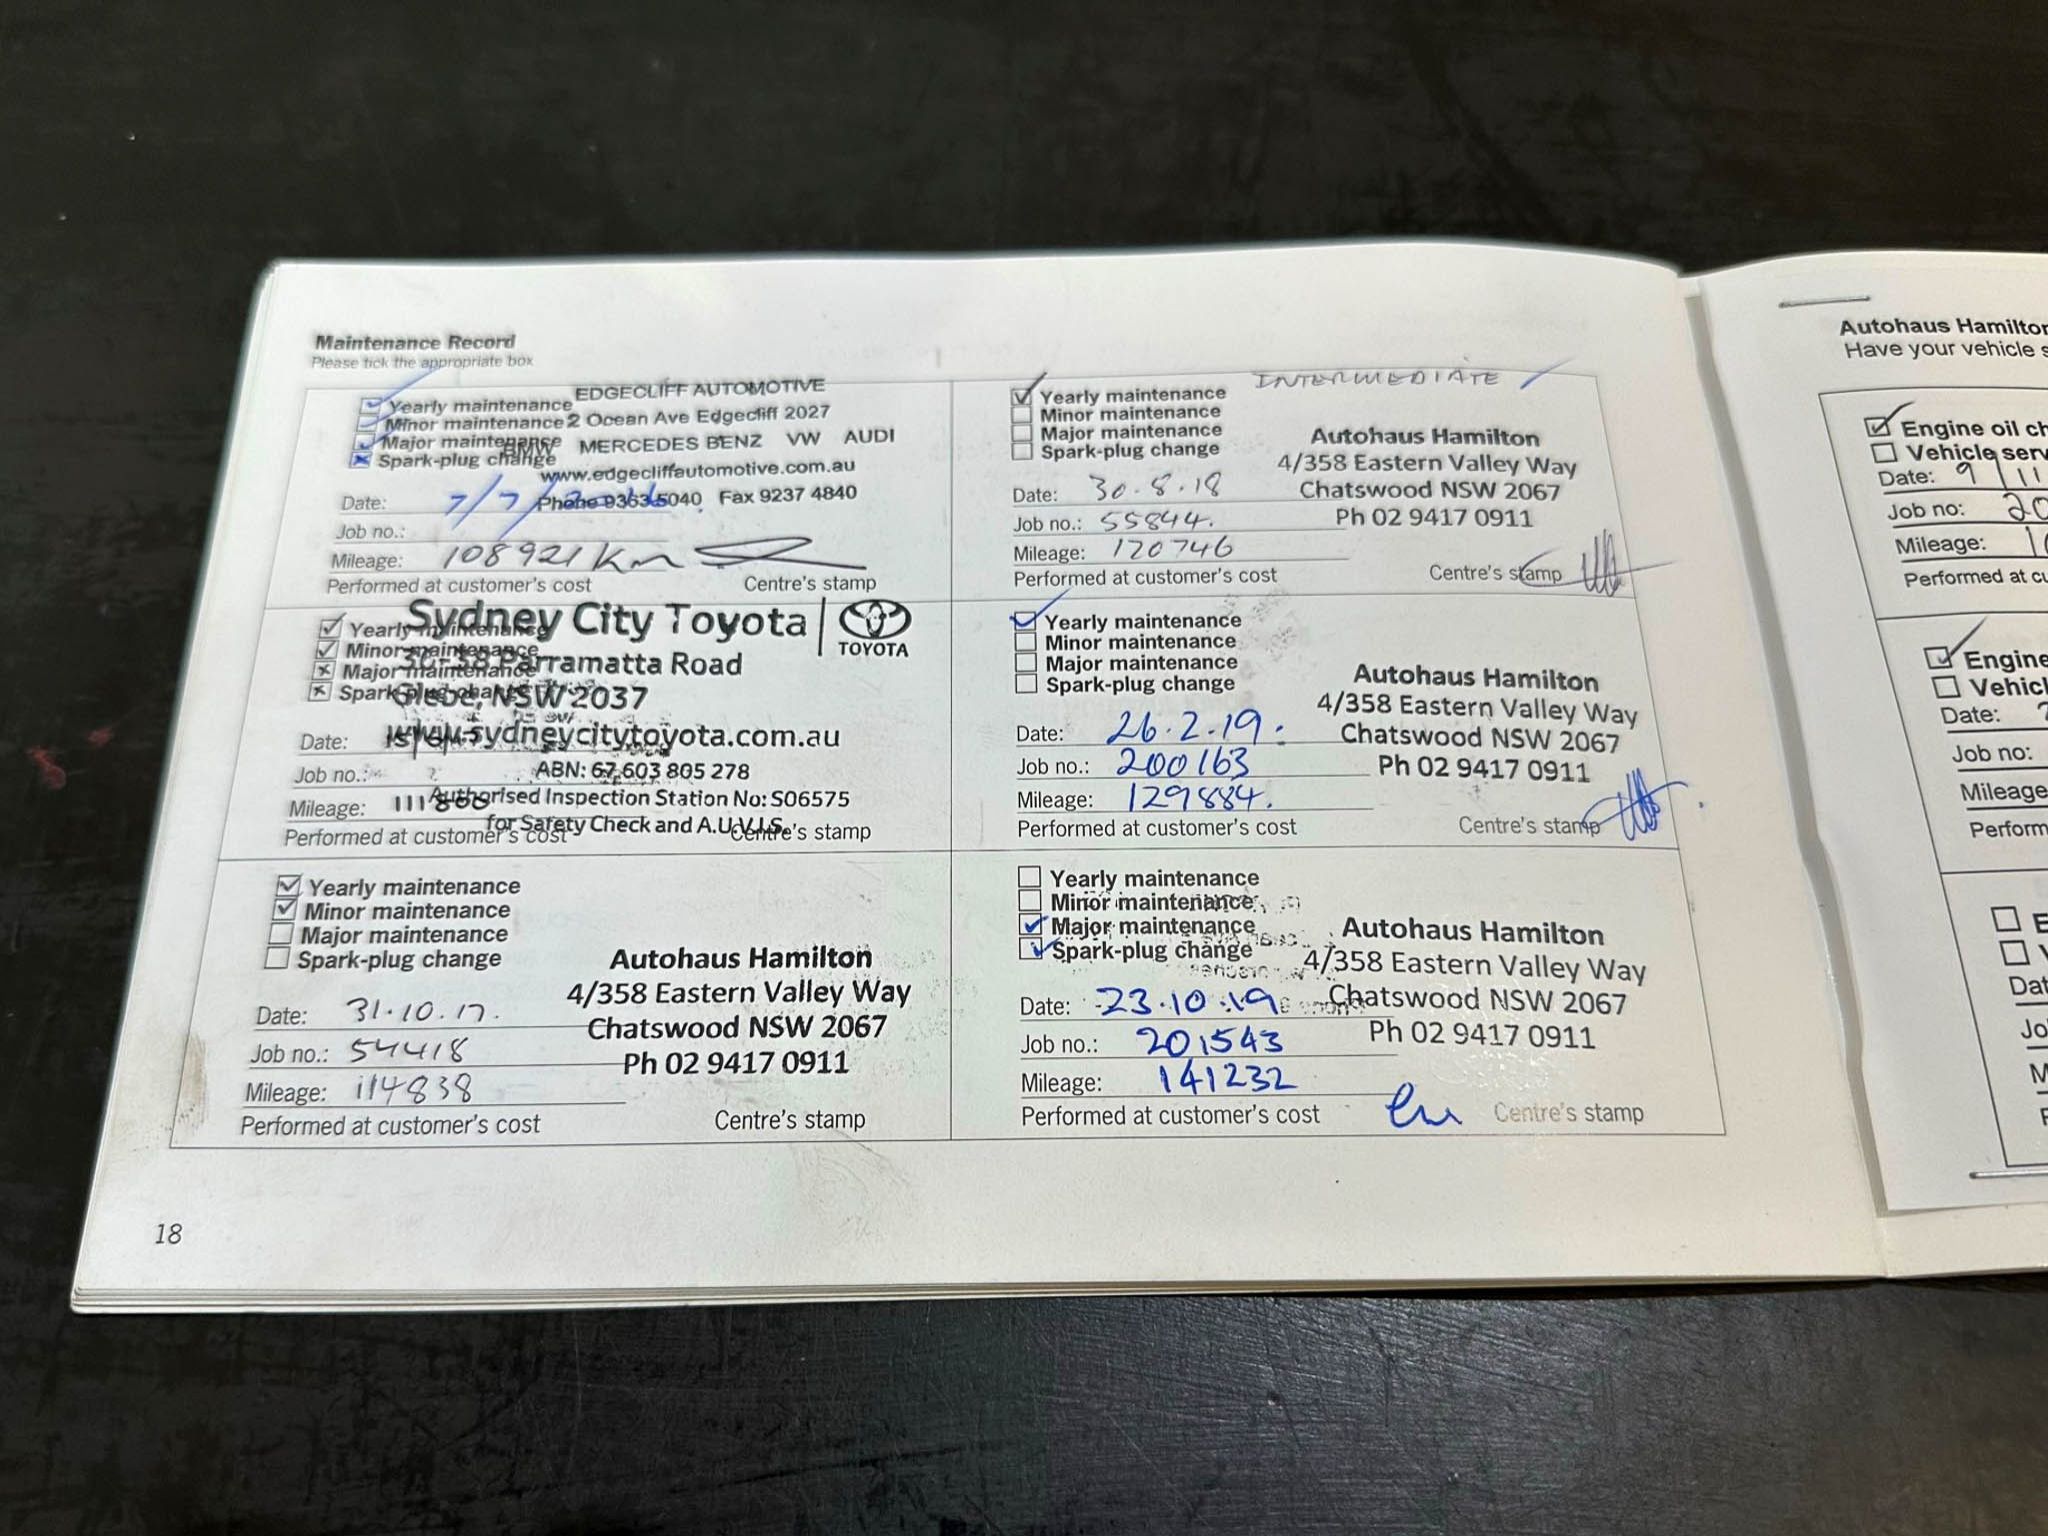 Maintenance Record
Please tick the appropriate box
Yearly maintenance
Minor maintenance
Major maintenance
Spark-plug change
EDGECLIFF AUTOMOTIVE
2 Ocean Ave Edgecliff 2027
BMW MERCEDES BENZ VW AUDI
www.edgecliffautomotive.com.au
Phone 9363 5040 Fax 9237 4840
Date: 7/7/
Job no.:
Mileage: 108921 Km
Performed at customer's cost
Centre's stamp
Yearly maintenance
Minor maintenance
Major maintenance
Spark-plug change
Sydney City Toyota
TOYOTA
Parramatta Road
Glebe, NSW 2037
www.sydneycitytoyota.com.au
ABN: 67 603 805 278
Authorised Inspection Station No: S06575
for Safety Check and A.U.V.I.S.
Date:
Job no.:
Mileage: 111800
Performed at customer's cost
Centre's stamp
Yearly maintenance
Minor maintenance
Major maintenance
Spark-plug change
Autohaus Hamilton
4/358 Eastern Valley Way
Chatswood NSW 2067
Ph 02 9417 0911
Date: 31.10.17.
Job no.: 54418
Mileage: 114838
Performed at customer's cost
Centre's stamp
18
INTERMEDIATE
Yearly maintenance
Minor maintenance
Major maintenance
Spark-plug change
Autohaus Hamilton
4/358 Eastern Valley Way
Chatswood NSW 2067
Ph 02 9417 0911
Date: 30.8.18
Job no.: 55844.
Mileage: 120746
Performed at customer's cost
Centre's stamp
Yearly maintenance
Minor maintenance
Major maintenance
Spark-plug change
Autohaus Hamilton
4/358 Eastern Valley Way
Chatswood NSW 2067
Ph 02 9417 0911
Date: 26.2.19.
Job no.: 200163
Mileage: 129884.
Performed at customer's cost
Centre's stamp
Yearly maintenance
Minor maintenance
Major maintenance
Spark-plug change
Autohaus Hamilton
4/358 Eastern Valley Way
Chatswood NSW 2067
Ph 02 9417 0911
Date: 23.10.19
Job no.: 201543
Mileage: 141232
Performed at customer's cost
Centre's stamp
Autohaus Hamilton
Have your vehicle s
Engine oil ch
Vehicle serv
Date: 9/11
Job no: 20
Mileage: 1
Performed at cu
Engine
Vehicl
Date:
Job no:
Mileage
Perform
E
V
Dat
Jo
M